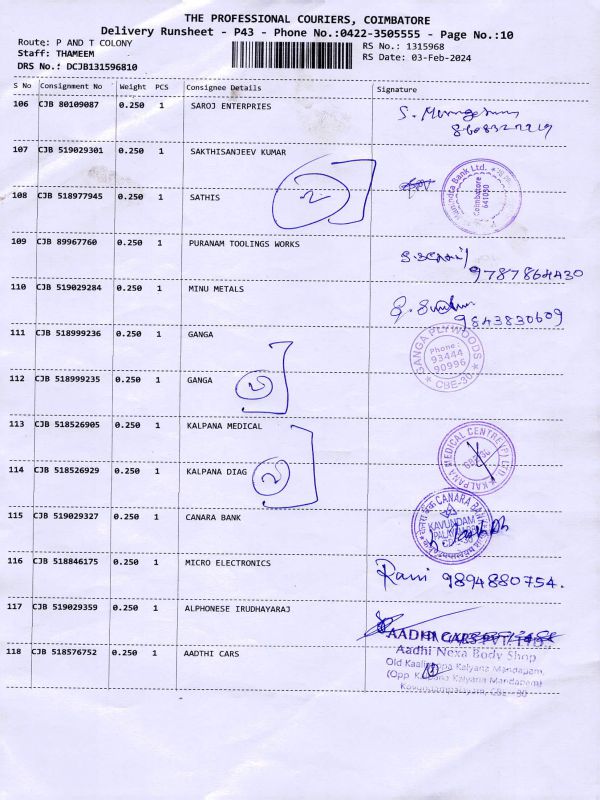 THE PROFESSIONAL COURIERS, COIMBATORE
Delivery Runsheet - P43 - Phone No.:0422-3505555 - Page No.:10
Route: P AND T COLONY
RS No.: 1315968
Staff: THAMEEM
RS Date: 03-Feb-2024
DRS No.: DCJB131596810
S No Consignment No Weight PCS Consignee Details Signature
106 CJB 80109087 0.250 1 SAROJ ENTERPRIES
107 CJB 519029301 0.250 1 SAKTHISANJEEV KUMAR
108 CJB 518977945 0.250 1 SATHIS
2
Ltd.
Coimbatore
641030
109 CJB 89967760 0.250 1 PURANAM TOOLINGS WORKS
9787864430
110 CJB 519029284 0.250 1 MINU METALS
9843830609
111 CJB 518999236 0.250 1 GANGA
GANGA PLYWOODS
Phone :
93444
90996
CBE-30
112 CJB 518999235 0.250 1 GANGA
2
113 CJB 518526905 0.250 1 KALPANA MEDICAL
KALPANA MEDICAL CENTRE (P) LTD
114 CJB 518526929 0.250 1 KALPANA DIAG
2
115 CJB 519029327 0.250 1 CANARA BANK
CANARA BANK
KAVUNDAM
116 CJB 518846175 0.250 1 MICRO ELECTRONICS
Ravi 9894880754.
117 CJB 519029359 0.250 1 ALPHONESE IRUDHAYARAJ
118 CJB 518576752 0.250 1 AADTHI CARS
AADHI CARS PVT LTD
Aadhi Nexa Body Shop
Kalyana Mandapam,
(Opp. Kalpana Kalyana Mandapam)